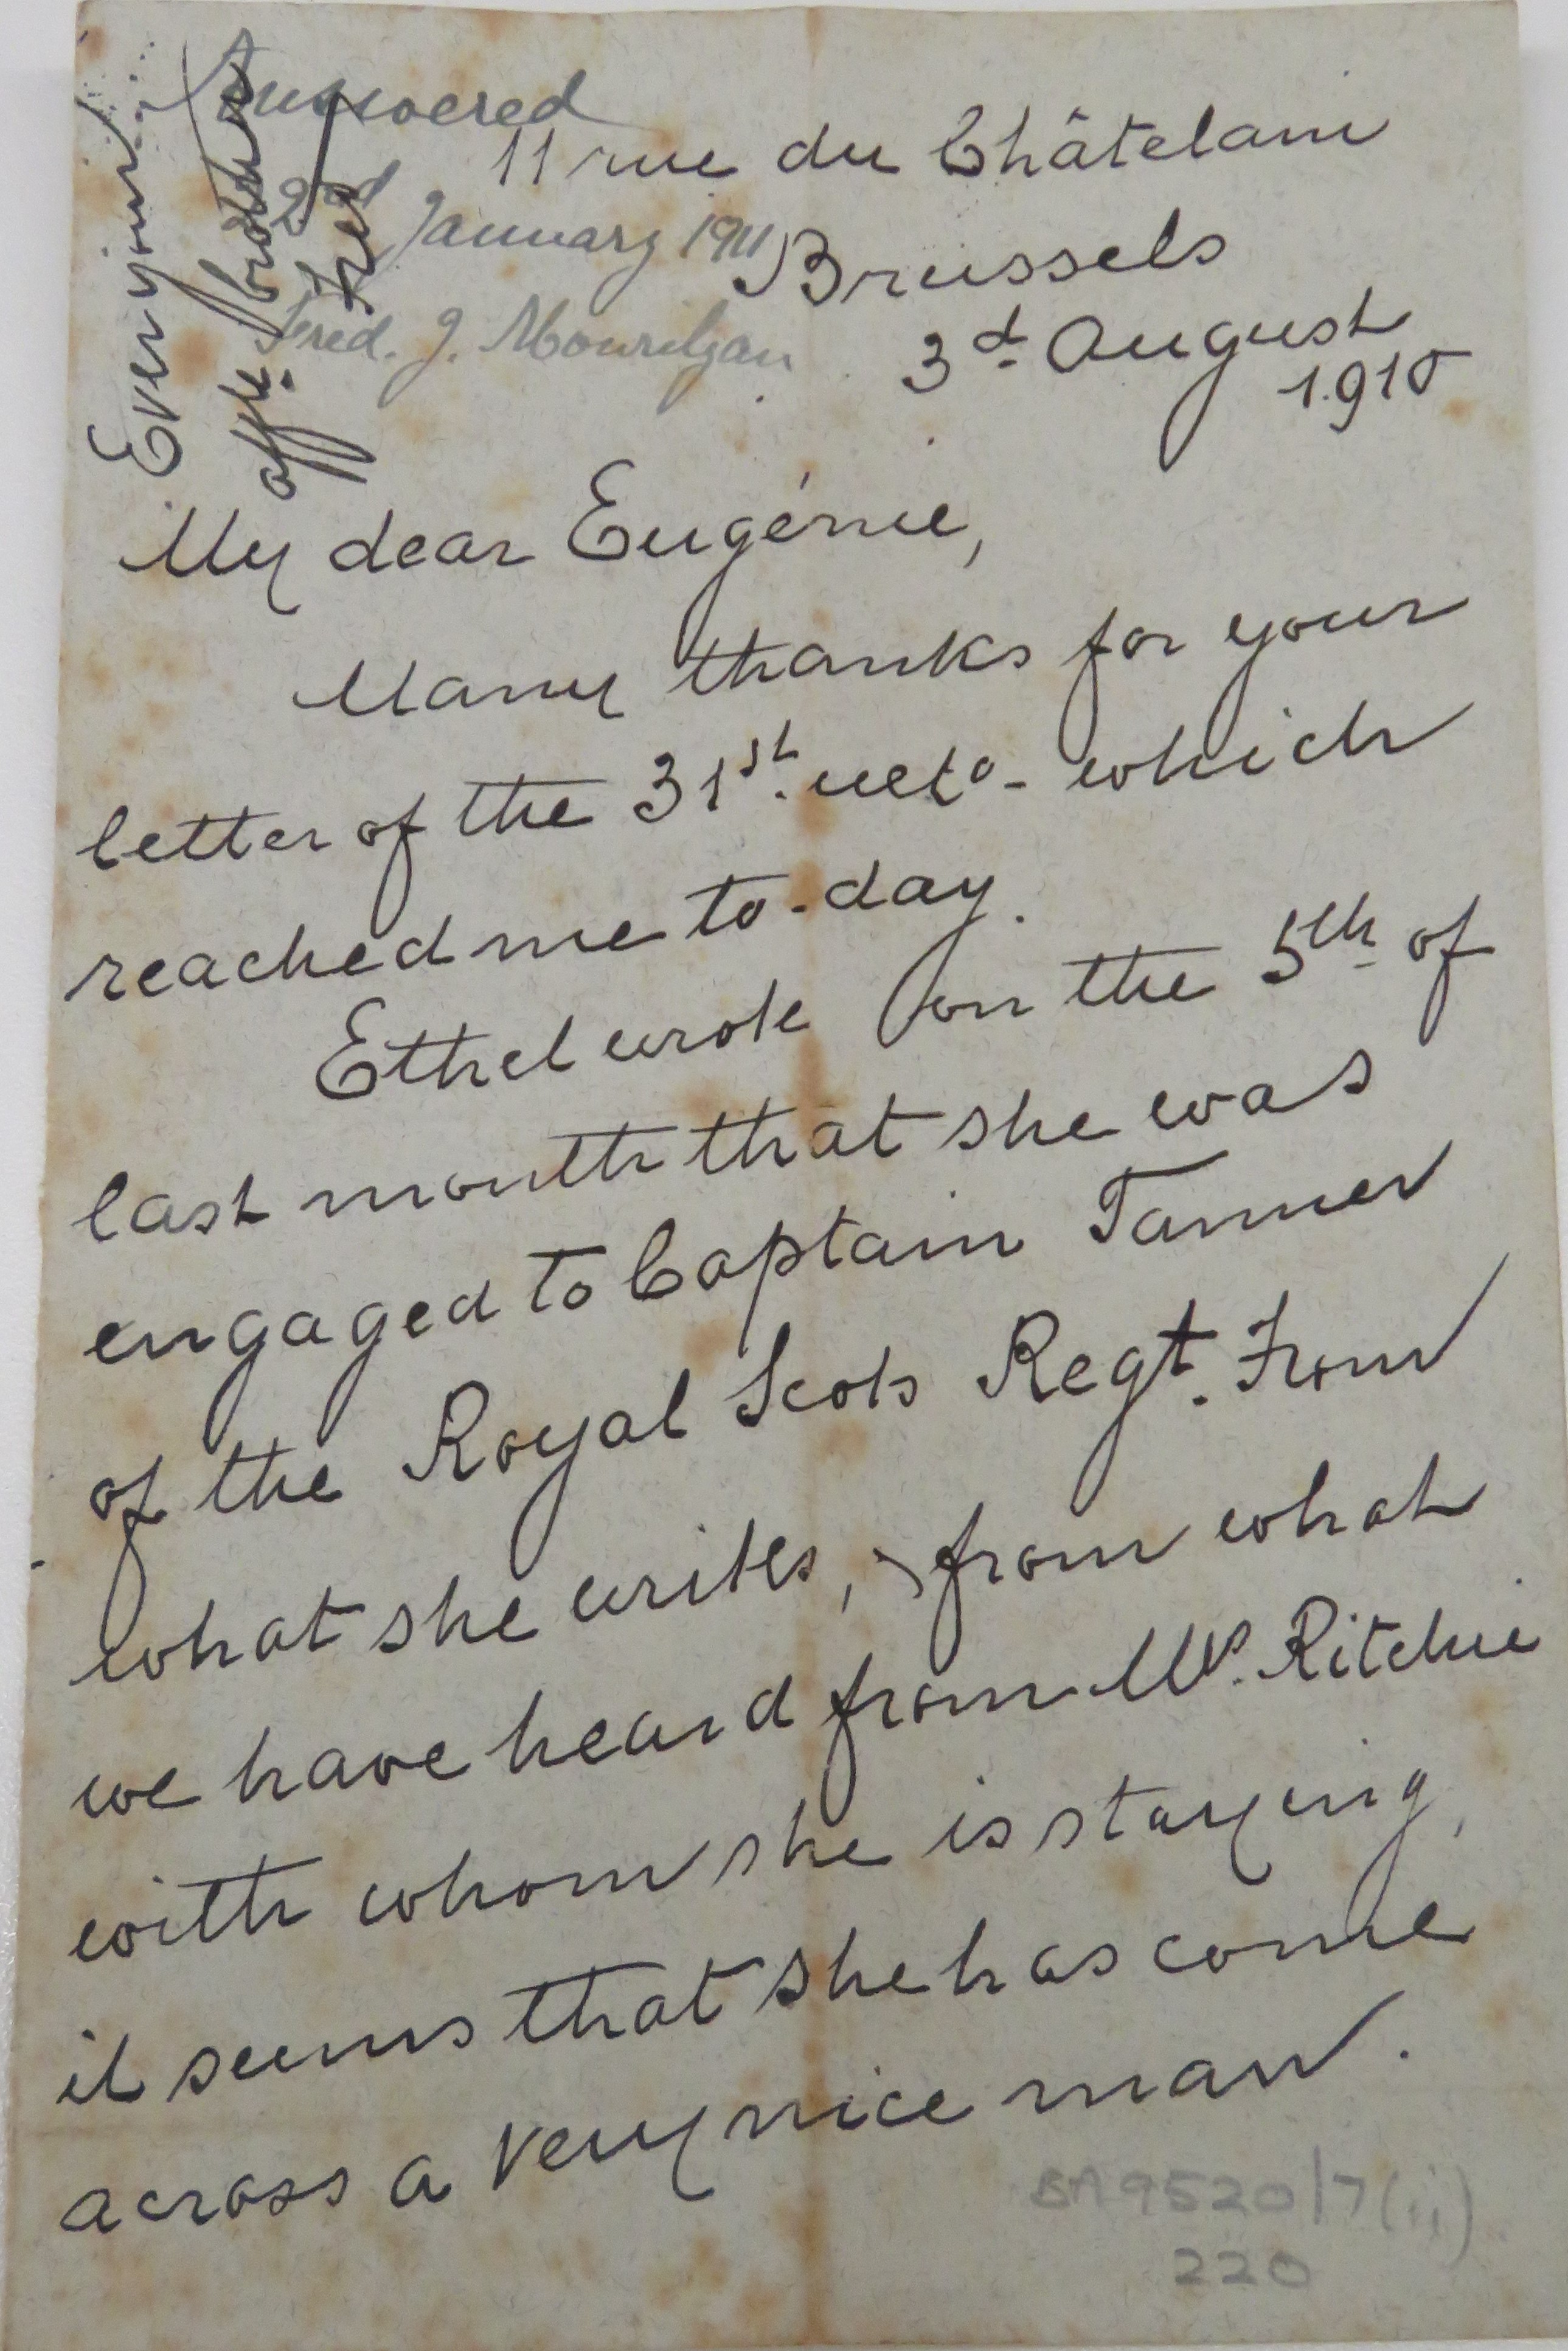 Answered
2nd January 1911
Fred. J. Mourilyan
Ever your
affte. brother
Fred
11 rue du Châtelain
Brussels
3d August
1910
My dear Eugénie,
Many thanks for your
letter of the 31st. ulto- which
reached me to-day.
Ethel wrote on the 5th of
last month that she was
engaged to Captain Tanner
of the Royal Scots Regt. From
what she writes, & from what
we have heard from Mrs. Ritchie
with whom she is staying,
it seems that she has come
across a very nice man.
BA9520/7(ii)
220